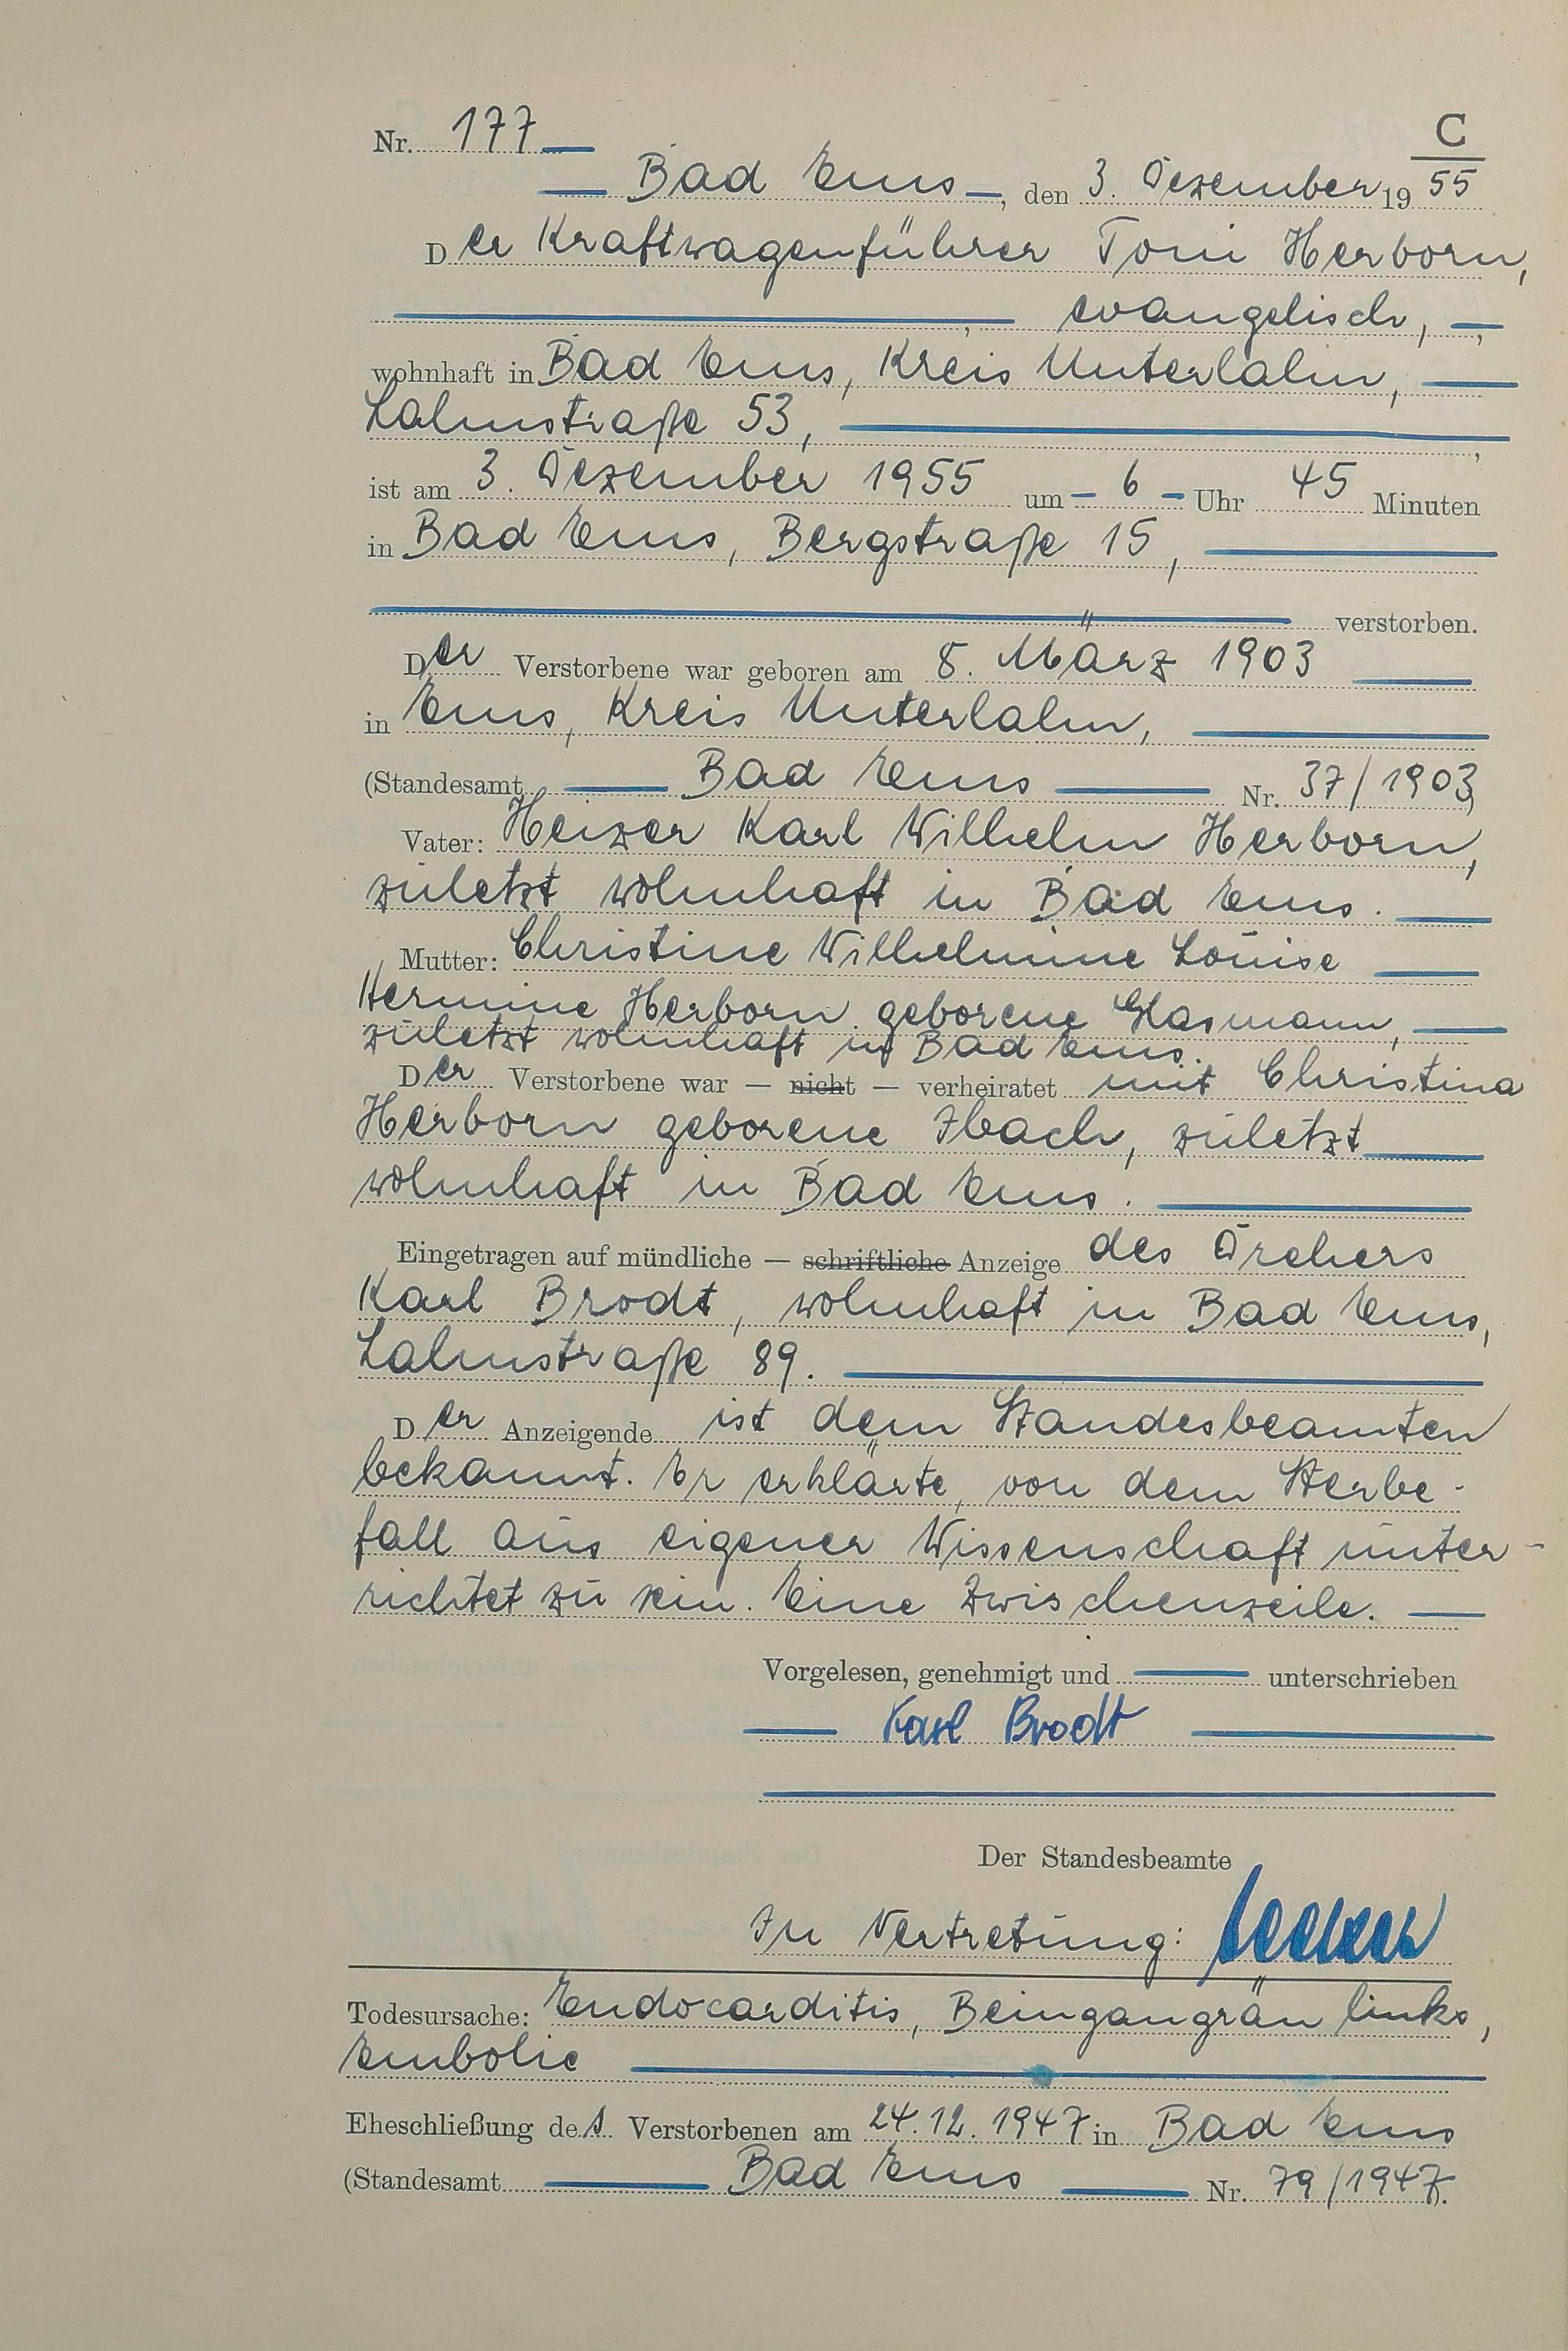 C
Nr. 177
Bad Ems, den 3. Dezember 1955
Der Kraftwagenführer Toni Herborn,
evangelisch,
wohnhaft in Bad Ems, Kreis Unterlahn,
Lahnstraße 53,
ist am 3. Dezember 1955 um 6 Uhr 45 Minuten
in Bad Ems, Bergstraße 15,
verstorben.
Der Verstorbene war geboren am 8. März 1903
in Ems, Kreis Unterlahn,
(Standesamt Bad Ems Nr. 37/1903)
Vater: Heizer Karl Wilhelm Herborn,
zuletzt wohnhaft in Bad Ems.
Mutter: Christine Wilhelmine Louise
Hermine Herborn geborene Glasmann,
zuletzt wohnhaft in Bad Ems.
Der Verstorbene war — nicht — verheiratet mit Christina
Herborn geborene Ibach, zuletzt
wohnhaft in Bad Ems.
Eingetragen auf mündliche — schriftliche Anzeige des Drehers
Karl Brodt, wohnhaft in Bad Ems,
Lahnstraße 89.
Der Anzeigende ist dem Standesbeamten
bekannt. Er erklärte, von dem Sterbe-
fall aus eigener Wissenschaft unter-
richtet zu sein. Eine Zwischenzeile.
Vorgelesen, genehmigt und unterschrieben
Karl Brodt
Der Standesbeamte
In Vertretung:
Todesursache: Endocarditis, Beingangrän links,
Embolie
Eheschließung des Verstorbenen am 24.12.1947 in Bad Ems
(Standesamt Bad Ems Nr. 79/1947).